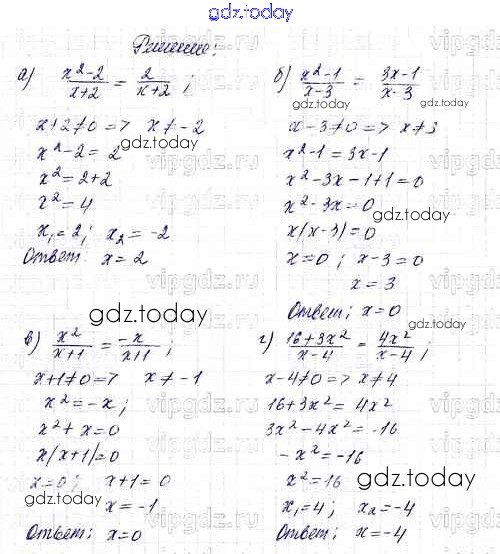 gdz.today
Решение:
а) x²-2/x+2 = 2/x+2 ;
x+2≠0 => x≠-2
x²-2= 2
x²=2+2
x²=4
x₁=2; x₂=-2
Ответ: x=2
б) x²-1/x-3 = 3x-1/x-3
x-3≠0 => x≠3
x²-1=3x-1
x²-3x-1+1=0
x²-3x=0
x(x-3)=0
x=0; x-3=0
x=3
Ответ: x=0
в) x²/x+1 = -x/x+1 ;
x+1≠0 => x≠-1
x²=-x;
x²+x=0
x(x+1)=0
x=0; x+1=0
x=-1
Ответ: x=0
г) 16+3x²/x-4 = 4x²/x-4 ;
x-4≠0 => x≠4
16+3x²= 4x²
3x²-4x²=-16
-x²=-16
x²=16
x₁=4; x₂=-4
Ответ: x=-4
gdz.today
gdz.today
gdz.today
gdz.today
gdz.today
gdz.today
gdz.today
gdz.today
gdz.today
vipgdz.ru
vipgdz.ru
vipgdz.ru
vipgdz.ru
vipgdz.ru
vipgdz.ru